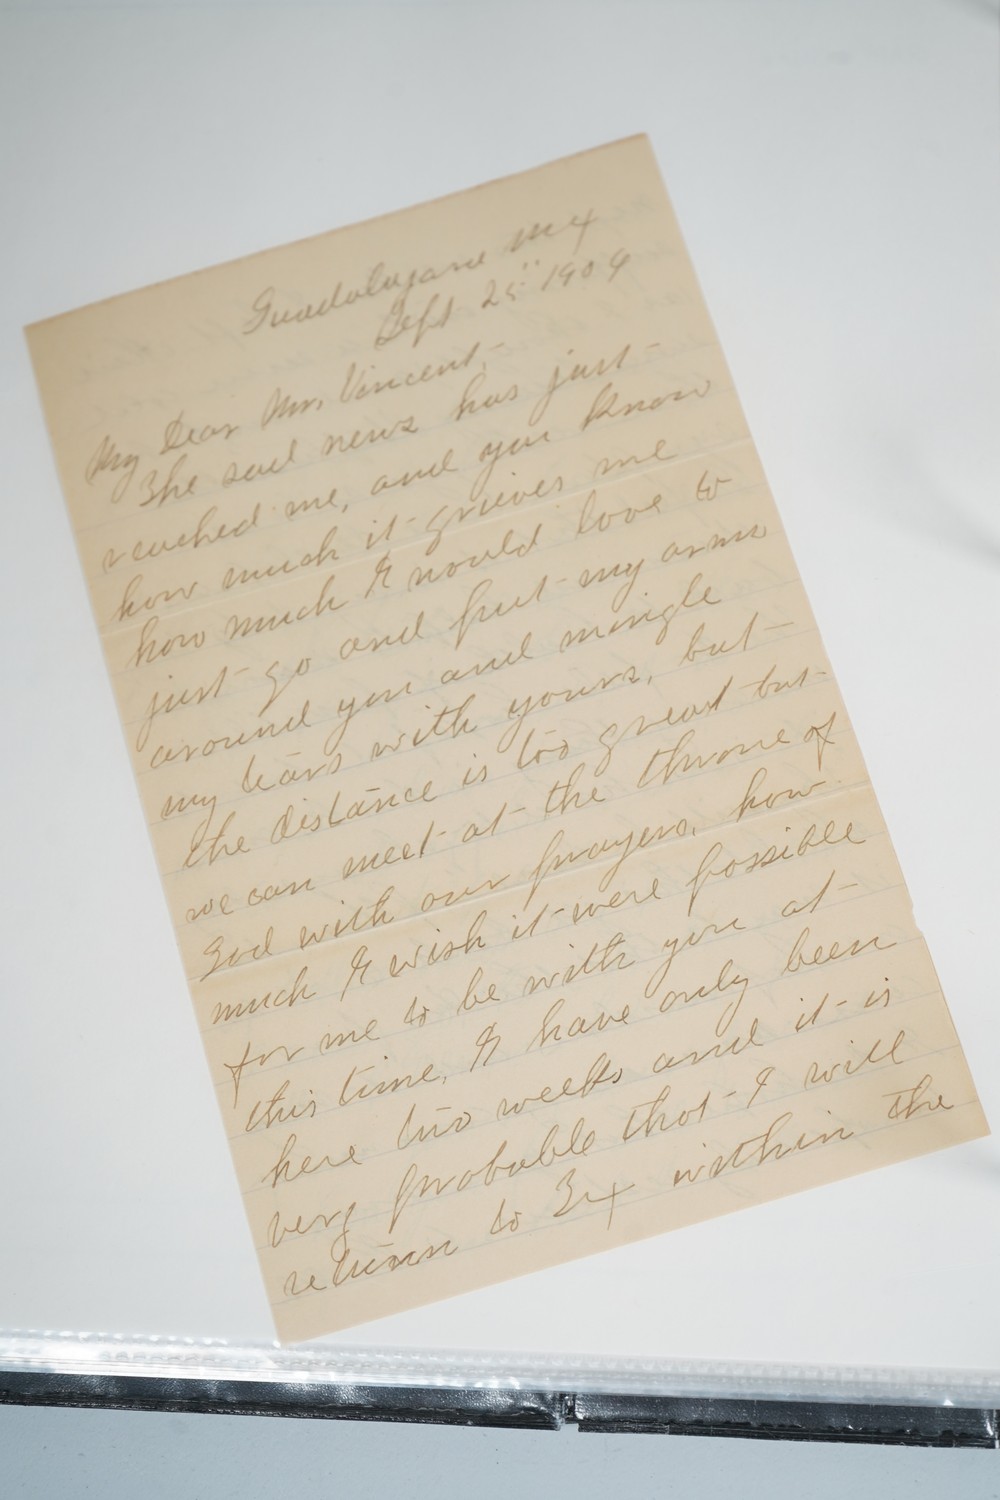 Guadalajara Mex
Sept 25" 1904
My Dear Mr. Vincent,
The sad news has just
reached me, and you know
how much it grieves me
how much I would love to
just go and put my arms
around you and mingle
my tears with yours, but
the distance is too great but
we can meet at the throne of
God with our prayers, how
much I wish it were possible
for me to be with you at
this time, I have only been
here two weeks and it is
very probable that I will
return to Tex within the